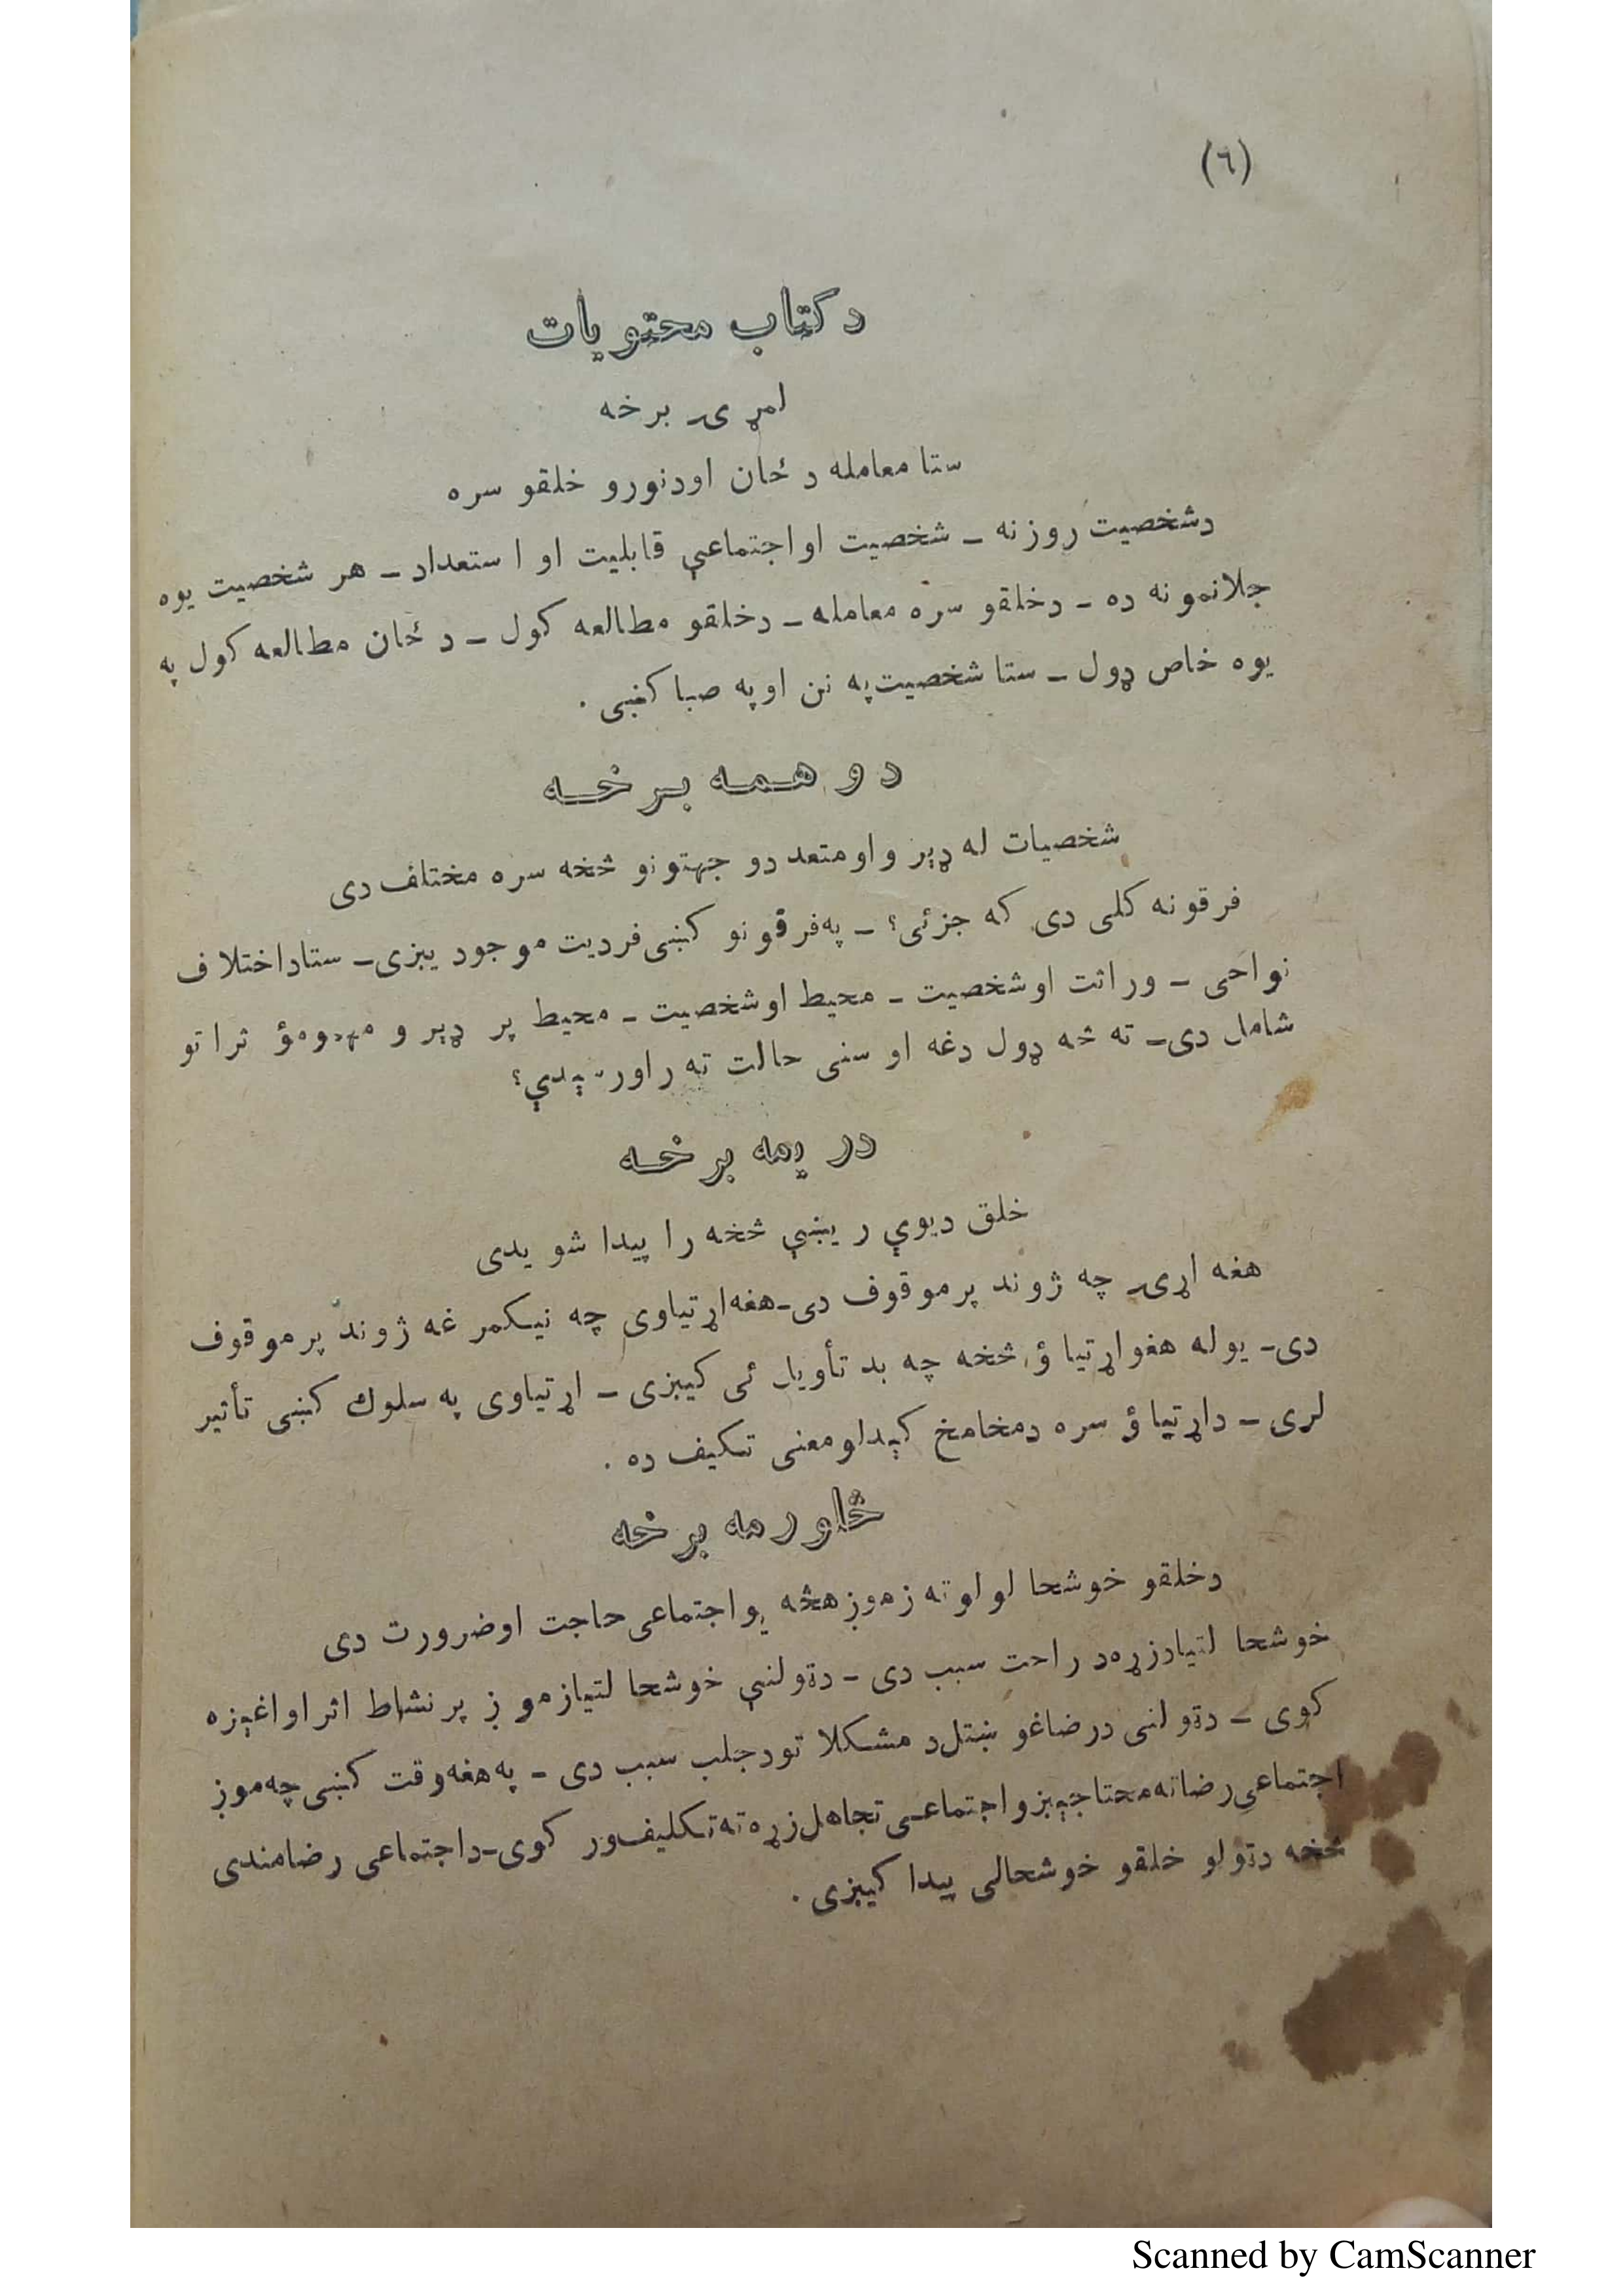 (٦)
د کتاب محتویات
لمړۍ برخه
ستا معامله د ځان اودنورو خلقو سره
دشخصیت روزنه ــ شخصیت اواجتماعې قابلیت او استعداد ــ هر شخصیت یوه
جلانمونه ده ــ دخلقو سره معامله ــ دخلقو مطالعه کول ــ د ځان مطالعه کول په
یوه خاص ډول ــ ستا شخصیت په نن اوپه صبا کښی .
دوهمه برخه
شخصیات له ډېر و اومتعددو جهتونو څخه سره مختلف دی
فرقونه کلی دی که جزئی؟ ــ په فرقونو کښی فردیت موجود یېزی ــ ستاداختلاف
نواحی ــ وراثت اوشخصیت ــ محیط اوشخصیت ــ محیط پر ډېر و مهمو مؤثراتو
شامل دی ــ ته څه ډول دغه او سنی حالت ته راورسېدې؟
دریمه برخه
خلق دیوې ریښې څخه را پیدا شویدی
هغه اړۍ چه ژوند پرموقوف دی ــ هغه اړتیاوی چه نیکمرغه ژوند پرموقوف
دی ــ یوله هغو اړتیاؤ څخه چه بد تأویل ئی کیېزی ــ اړتیاوی په سلوك کښی تأثیر
لری ــ داړتیاؤ سره دمخامخ کېدلو معنی تکیف ده .
څاورمه برخه
دخلقو خوشحا لولو ته زموږ هڅه یو اجتماعی حاجت اوضرورت دی
خوشحا لتیا دزړه د راحت سبب دی ــ دټولنې خوشحا لتیا زموږ پر نشاط اثر او اغېزه
کوی ــ دټولنی درضاغوښتل د مشکلاتو دجلب سبب دی ــ په هغه وقت کښی چه موږ
اجتماعی رضاته محتاجېږو اجتماعی تجاهل زړه ته تکلیف ور کوی ــ داجتماعی رضامندی
څخه دټولو خلقو خوشحالی پیدا کیېزی .
Scanned by CamScanner